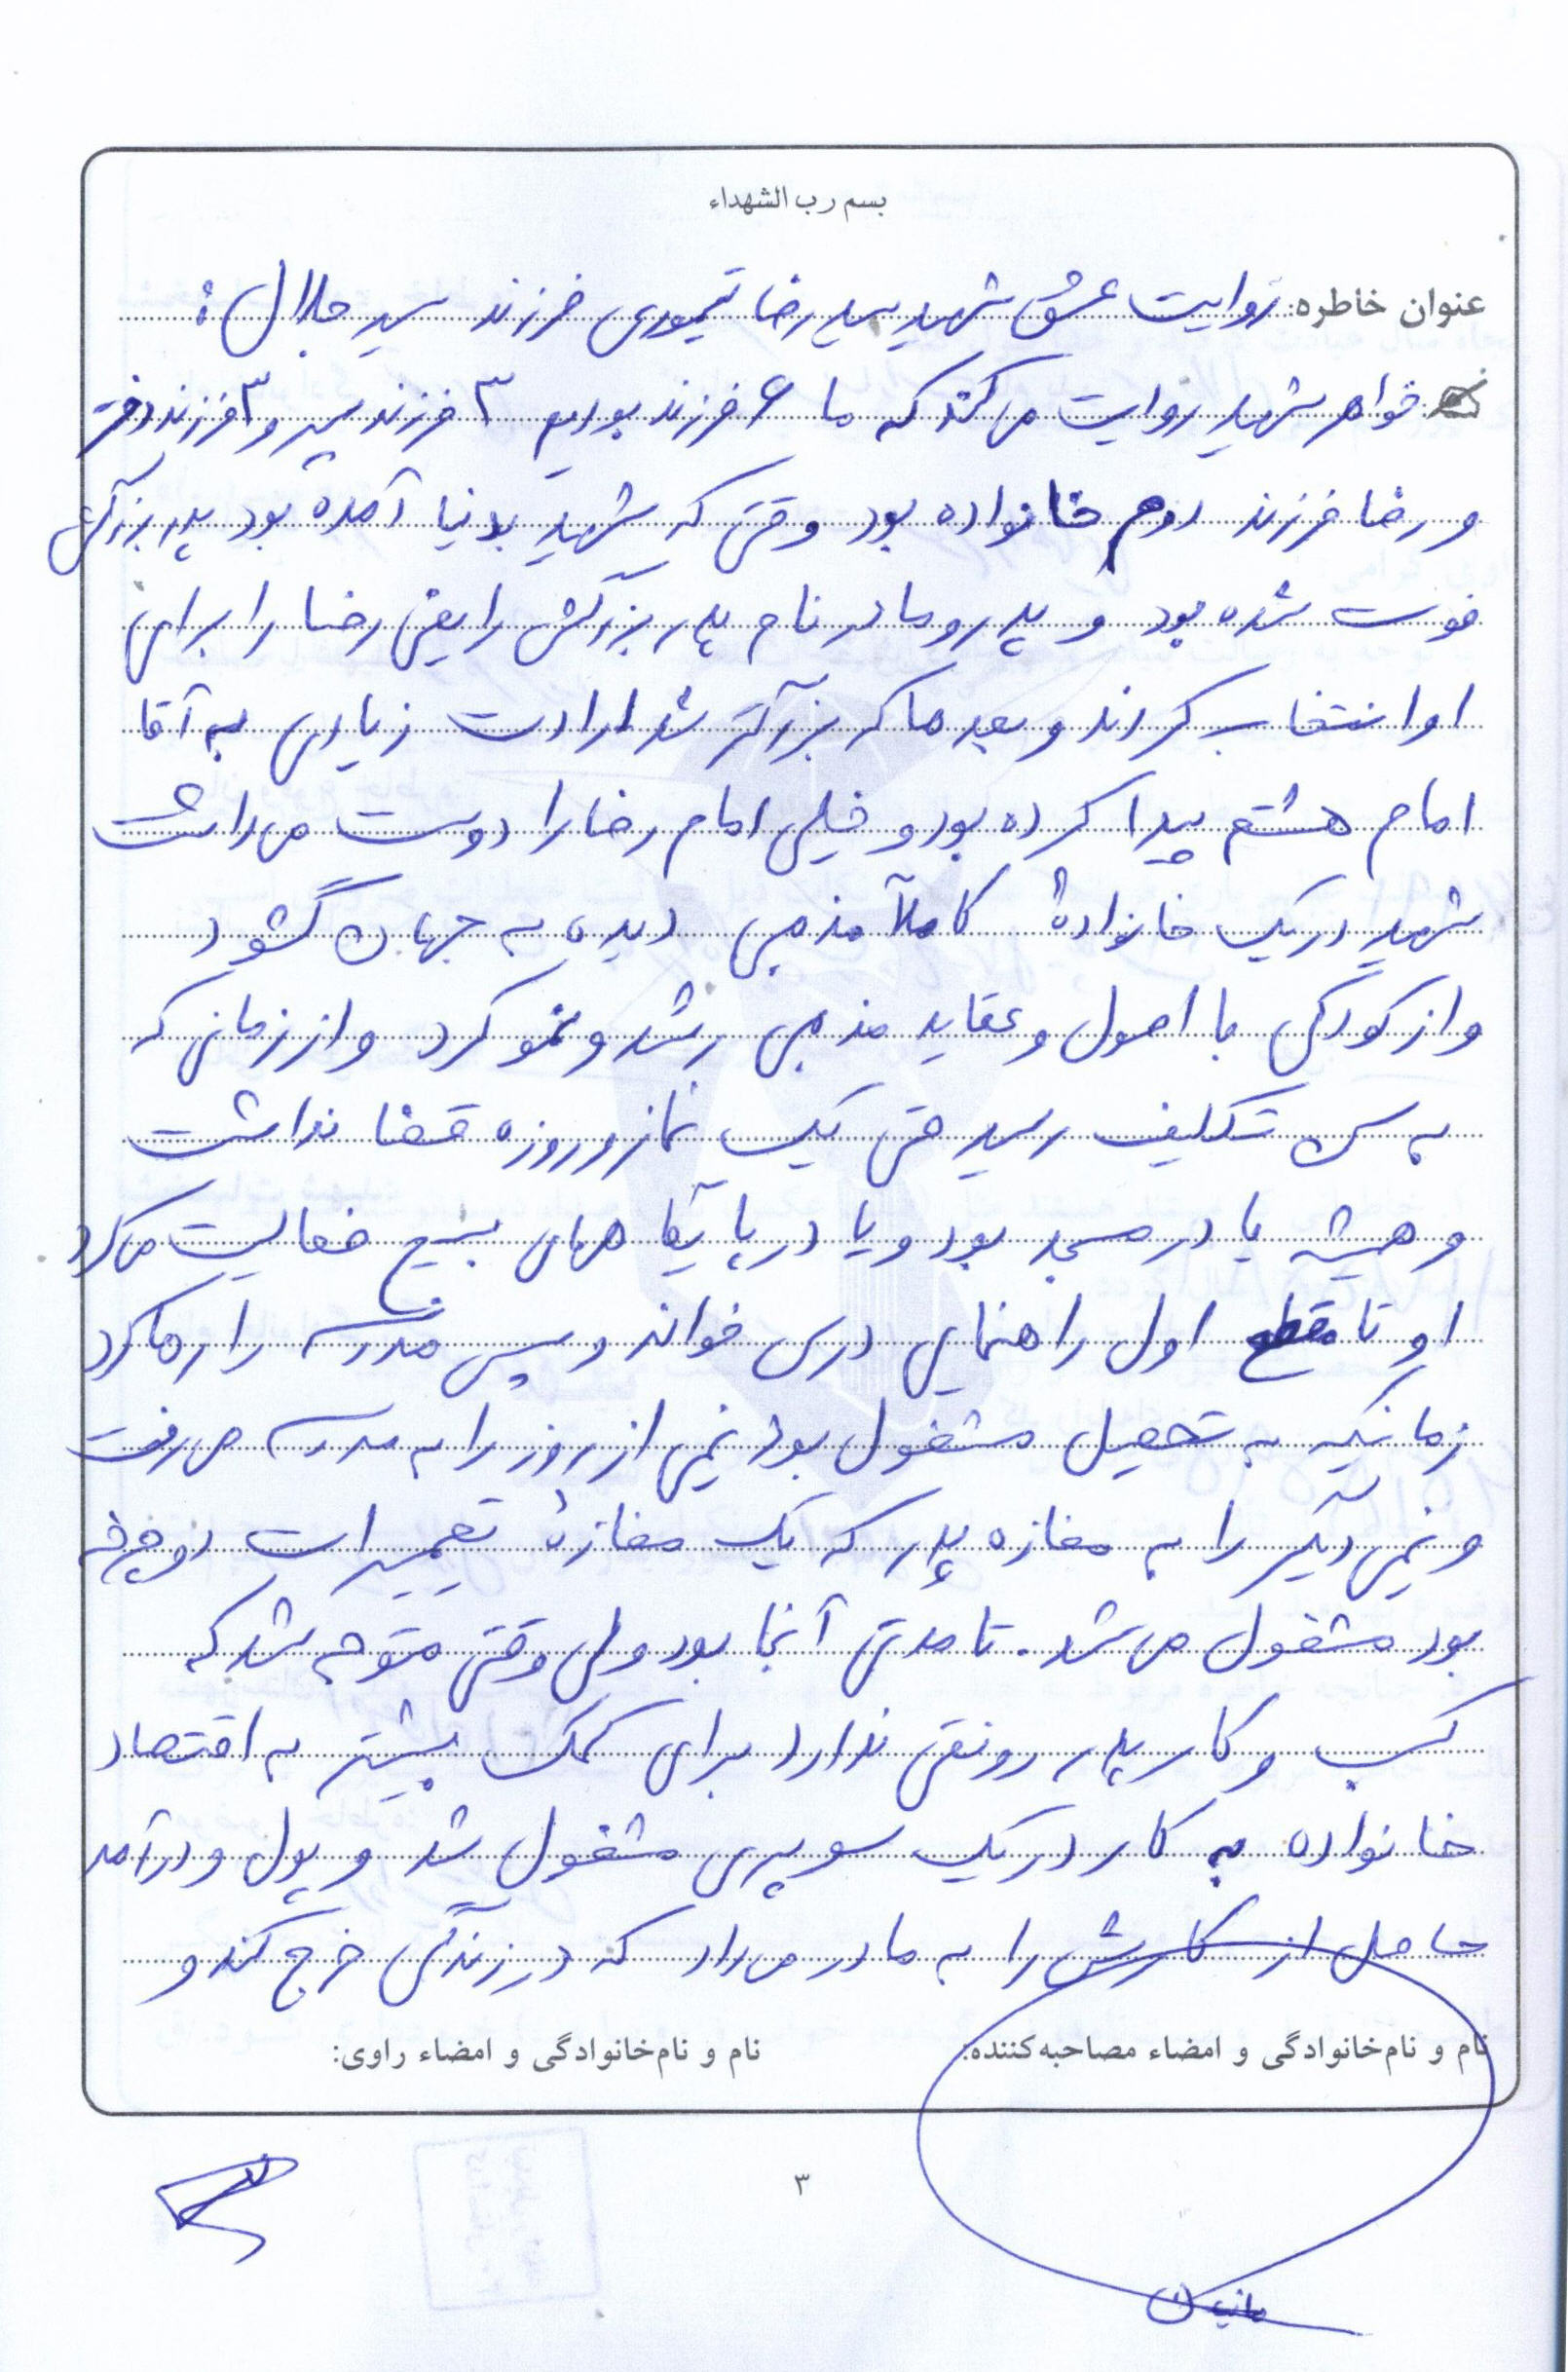 بسم رب الشهداء
عنوان خاطره: روایت عشق شهید سید رضا تیموری فرزند سید جلال:
خواهر شهید روایت می کند که ما ۶ فرزند بودیم ۳ فرزند پسر و ۳ فرزند دختر
و رضا فرزند دوم خانواده بود وقتی که شهید بدنیا آمده بود پدربزرگش
فوت شده بود و پدر و مادر نام پدربزرگش را یعنی رضا را برای
او انتخاب کردند و بعدها که بزرگتر شد ارادت زیادی به آقا
امام هشتم پیدا کرده بود و خیلی امام رضا را دوست می داشت
شهید در یک خانوادهٔ کاملاً مذهبی دیده به جهان گشود
و از کودکی با اصول و عقاید مذهبی رشد و نمو کرد و از زمانی که
به سن تکلیف رسید حتی یک نماز و روزه قضا نداشت
و همیشه یا در مسجد بود و یا در پایگاه های بسیج فعالیت می کرد
او تا مقطع اول راهنمایی درس خواند و سپس مدرسه را رها کرد
زمانیکه به تحصیل مشغول بود نیمی از روز را به مدرسه می رفت
و نیمی دیگر را به مغازه پدر که یک مغازهٔ تعمیرات دوچرخه
بود مشغول می شد. تا مدتی آنجا بود ولی وقتی متوجه شد که
کسب و کار پدر رونقی ندارد برای کمک بیشتر به اقتصاد
خانواده به کار در یک سوپری مشغول شد و پول و درآمد
حاصل از کارش را به مادر می داد که در زندگی خرج کند و
نام و نام‌خانوادگی و امضاء مصاحبه‌کننده:
نام و نام‌خانوادگی و امضاء راوی:
۳